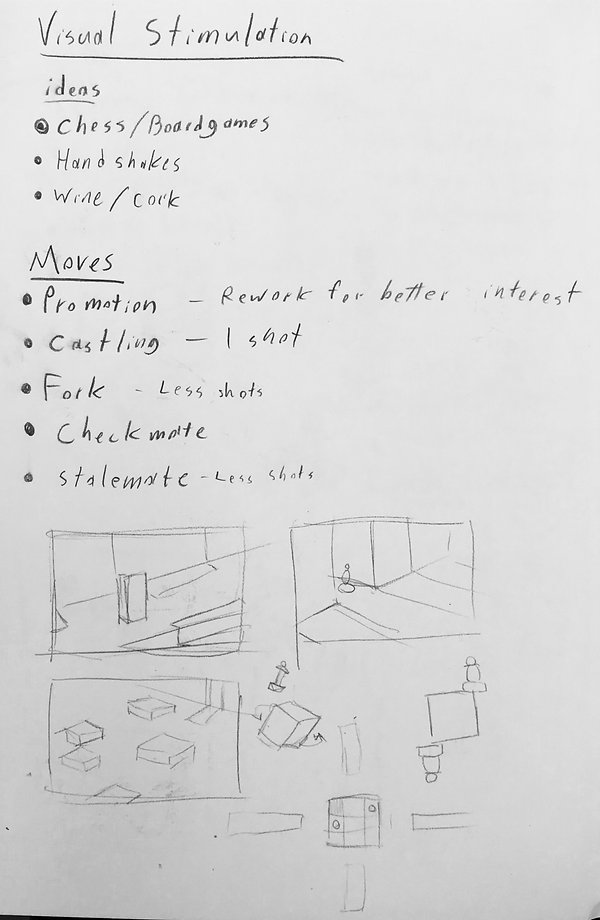 Visual Stimulation
ideas
• Chess/Boardgames
• Handshakes
• Wine/Cork
Moves
• Promotion - Rework for better interest
• Castling - 1 shot
• Fork - Less shots
• Checkmate
• Stalemate - Less shots